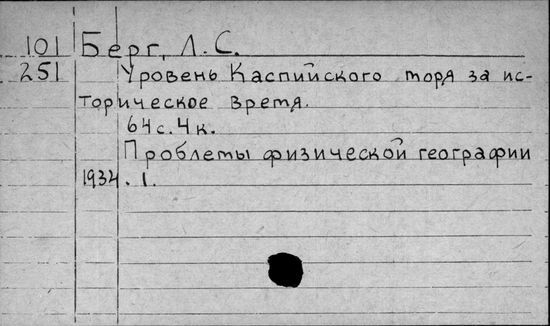 101 Берг, Л. С.
251 Уровень Каспийского моря за ис-
торическое время.
64 с. 4 к.
Проблемы физической географии
1934. 1.